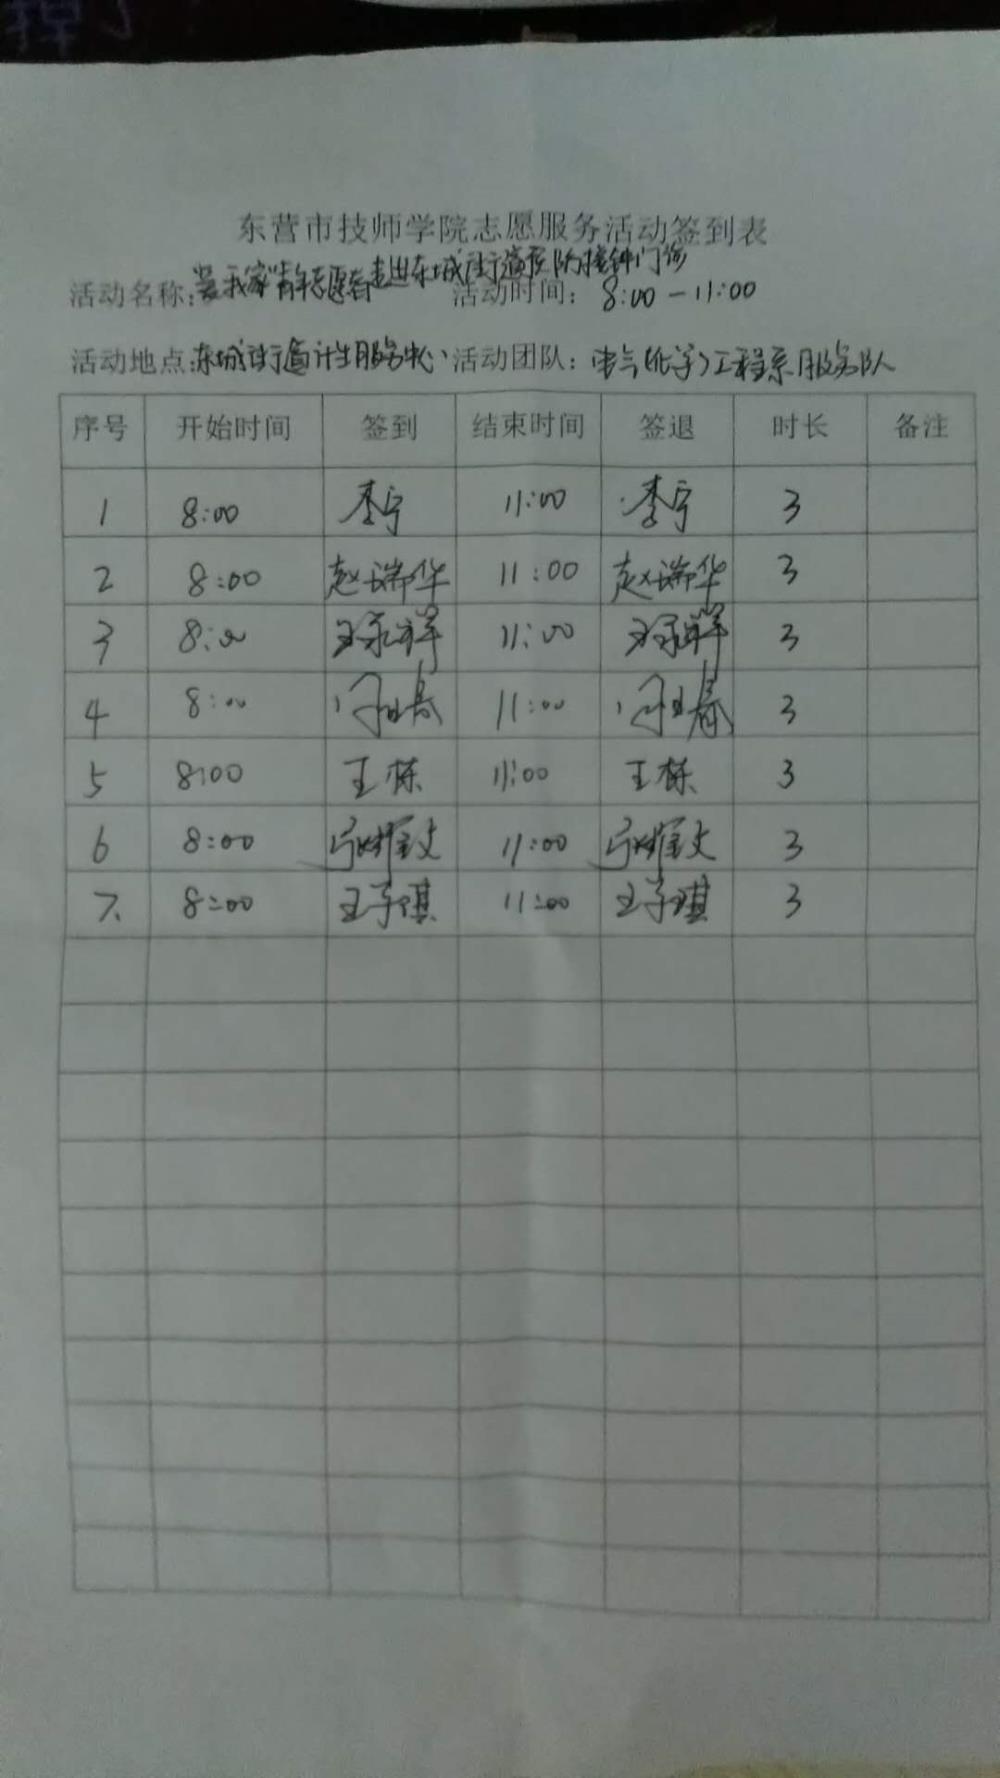 东营市技师学院志愿服务活动签到表
活动名称:爱我家"青年志愿者走进东城街道预防接种门诊 活动时间: 8:00-11:00
活动地点:东城街道计生服务中心 活动团队: 电气(化学)工程系服务队
序号 开始时间 签到 结束时间 签退 时长 备注
1 8:00 李宁 11:00 李宁 3
2 8:00 赵瑞华 11:00 赵瑞华 3
3 8:00 王永祥 11:00 王永祥 3
4 8:00 11:00 3
5 8:00 王栋 11:00 王栋 3
6 8:00 11:00 3
7. 8:00 王子琪 11:00 王子琪 3